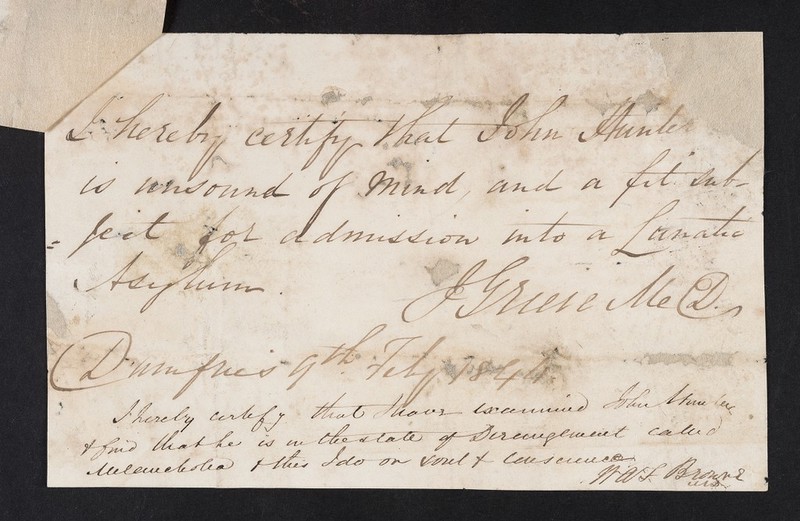 I hereby certify that John Hunter
is unsound of mind, and a fit sub-
ject for admission into a Lunatic
Asylum.
J Grieve M.D.
Dumfries 9th. Feby 1844.
I hereby certify that I have examined John Hunter
& find that he is in the state of Derangement called
Melancholia & this I do on soul & conscience
W A F Browne
M.D.